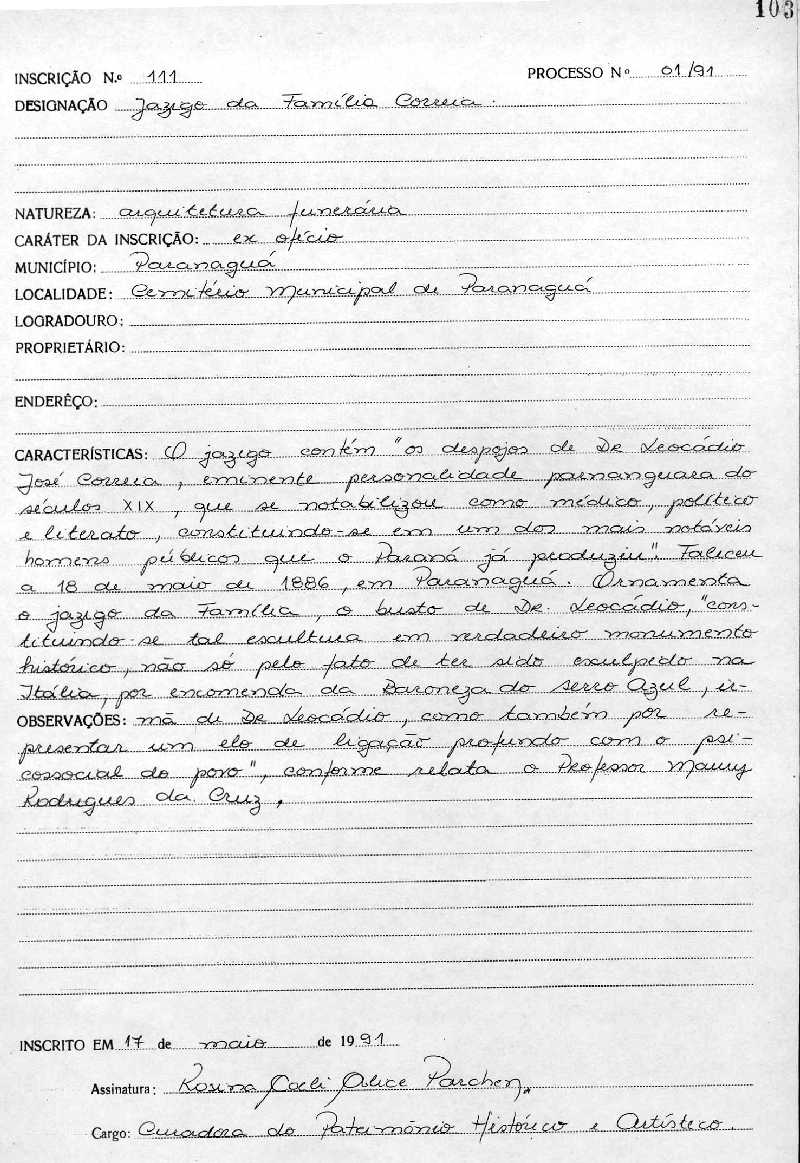 103
INSCRIÇÃO N.º 111 PROCESSO Nº 01/91
DESIGNAÇÃO Jazigo da Família Correia.
NATUREZA: arquitetura funerária
CARÁTER DA INSCRIÇÃO: ex ofício
MUNICÍPIO: Paranaguá
LOCALIDADE: Cemitério Municipal de Paranaguá
LOGRADOURO:
PROPRIETÁRIO:
ENDERÊÇO:
CARACTERÍSTICAS: O jazigo contém "os despojos de Dr Leocádio
José Correia, eminente personalidade parnanguara do
séculos XIX, que se notabilizou como médico, político
e literato, constituindo-se em um dos mais notáveis
homens públicos que o Paraná já produziu". Faliceu
a 18 de maio de 1886, em Paranaguá. Ornamenta
o jazigo da Família, o busto de Dr. Leocádio, "cons-
tituindo-se tal escultura em verdadeiro monumento
histórico, não só pelo fato de ter sido esculpido na
Itália, por encomenda da Baroneza do Serro Azul, ir-
OBSERVAÇÕES: mã de Dr Leocádio, como também por re-
presentar um elo de ligação profundo com o psi-
cossocial do povo", conforme relata o Professor Maury
Rodrigues da Cruz.
INSCRITO EM 17 de maio de 1991
Assinatura: Rosina Coeli Alice Parchen
Cargo: Curadora do Patrimônio Histórico e Artístico.